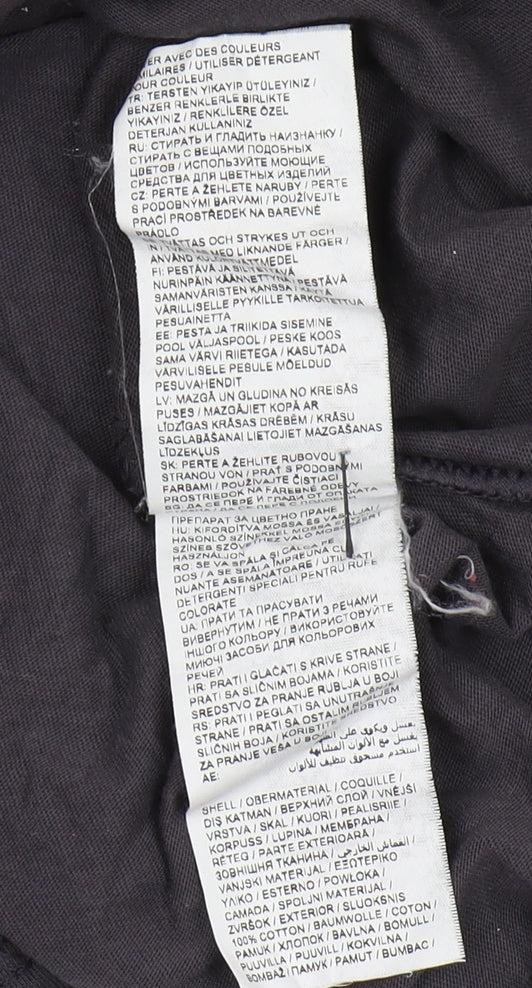 ER AVEC DES COULEURS
MILAIRES / UTILISER DÉTERGENT
OUR COULEUR
TR: TERSTEN YIKAYIP ÜTÜLEYINIZ /
BENZER RENKLERLE BIRLIKTE
YIKAYINIZ / RENKLILERE ÖZEL
DETERJAN KULLANINIZ
RU: СТИРАТЬ И ГЛАДИТЬ НАИЗНАНКУ /
СТИРАТЬ С ВЕЩАМИ ПОДОБНЫХ
ЦВЕТОВ / ИСПОЛЬЗУЙТЕ МОЮЩИЕ
СРЕДСТВА ДЛЯ ЦВЕТНЫХ ИЗДЕЛИЙ
CZ: PERTE A ŽEHLETE NARUBY / PERTE
S PODOBNÝMI BARVAMI / POUŽÍVEJTE
PRACÍ PROSTŘEDEK NA BAREVNÉ
PRÁDLO
TVÄTTAS OCH STRYKES UT OCH
MED LIKNANDE FÄRGER /
ANVÄND KULÖRTVÄTTMEDEL
FI: PESTÄVÄ JA SILITETTÄVÄ
NURINPÄIN KÄÄNNETTYNÄ / PESTÄVÄ
SAMANVÄRISTEN KANSSA / KÄYTÄ
VÄRILLISELLE PYYKILLE TARKOTETTUA
PESUAINETTA
EE: PESTA JA TRIIKIDA SISEMINE
POOL VÄLJASPOOL / PESKE KOOS
SAMA VÄRVI RIIETEGA / KASUTADA
VÄRVILISELE PESULE MÕELDUD
PESUVAHENDIT
LV: MAZGĀ UN GLUDINA NO KREISĀS
PUSES / MAZGĀJIET KOPĀ AR
LĪDZĪGAS KRĀSAS DRĒBĒM / KRĀSU
SAGLABĀŠANAI LIETOJIET MAZGĀŠANAS
LĪDZEKĻUS
SK: PERTE A ŽEHLITE RUBOVOU
STRANOU VON / PRAŤ S PODOBNÝMI
FARBAMI / POUŽÍVAJTE ČISTIACI
PROSTRIEDOK NA FAREBNÉ ODEVY
BG: ДА СЕ ПЕРЕ И ГЛАДИ ОТ ОПАКАТА
ПРЕПАРАТ ЗА ЦВЕТНО ПРАНЕ
HU: KIFORDÍTVA MOSSA ÉS VASALJA /
HASONLÓ SZÍNEKKEL MOSSA
SZÍNES SZÖVETHEZ VALÓ MOSÓSZERT
HASZNÁLJON
RO: SE VA SPĂLA ŞI CĂLCA PE
DOS / A SE SPĂLA ÎMPREUNĂ CU
NUANTE ASEMĂNĂTOARE / UTILIZATI
DETERGENTI SPECIALI PENTRU RUFE
COLORATE
UA: ПРАТИ ТА ПРАСУВАТИ
ВИВЕРНУТИМ / НЕ ПРАТИ З РЕЧАМИ
ІНШОГО КОЛЬОРУ / ВИКОРИСТОВУЙТЕ
МИЮЧІ ЗАСОБИ ДЛЯ КОЛЬОРОВИХ
РЕЧЕЙ
HR: PRATI I GLAČATI S KRIVE STRANE /
PRATI SA SLIČNIM BOJAMA / KORISTITE
SREDSTVO ZA PRANJE RUBLJA U BOJI
RS: PRATI I PEGLATI SA UNUTRAŠNJE
STRANE / PRATI SA OSTALIM RUBLJEM
SLIČNIH BOJA / KORISTITE SREDSTVO
ZA PRANJE VEŠA U BOJI
يغسل ويكوى على
يغسل مع الألوان المشابهة
استخدم مسحوق تنظيف للألوان
AE:
SHELL / OBERMATERIAL / COQUILLE /
DIŞ KATMAN / ВЕРХНИЙ СЛОЙ / VNĚJŠÍ
VRSTVA / SKAL / KUORI / PEALISRIIE /
KORPUSS / LUPINA / МЕМБРАНА /
RÉTEG / PARTE EXTERIOARA /
ЗОВНІШНЯ ТКАНИНА / القماش الخارجي /
VANJSKI MATERIJAL / ΕΞΩΤΕΡΙΚΟ
ΥΛΙΚΟ / ESTERNO / POWŁOKA /
CAMADA / SPOLJNI MATERIJAL /
ZVRŠOK / EXTERIOR / SLUOKSNIS
100% COTTON / BAUMWOLLE / COTON /
PAMUK / ХЛОПОК / BAVLNA / BOMULL /
PUUVILLA / PUUVILL / KOKVILNA /
BOMBAŽ / ПАМУК / PAMUT / BUMBAC /